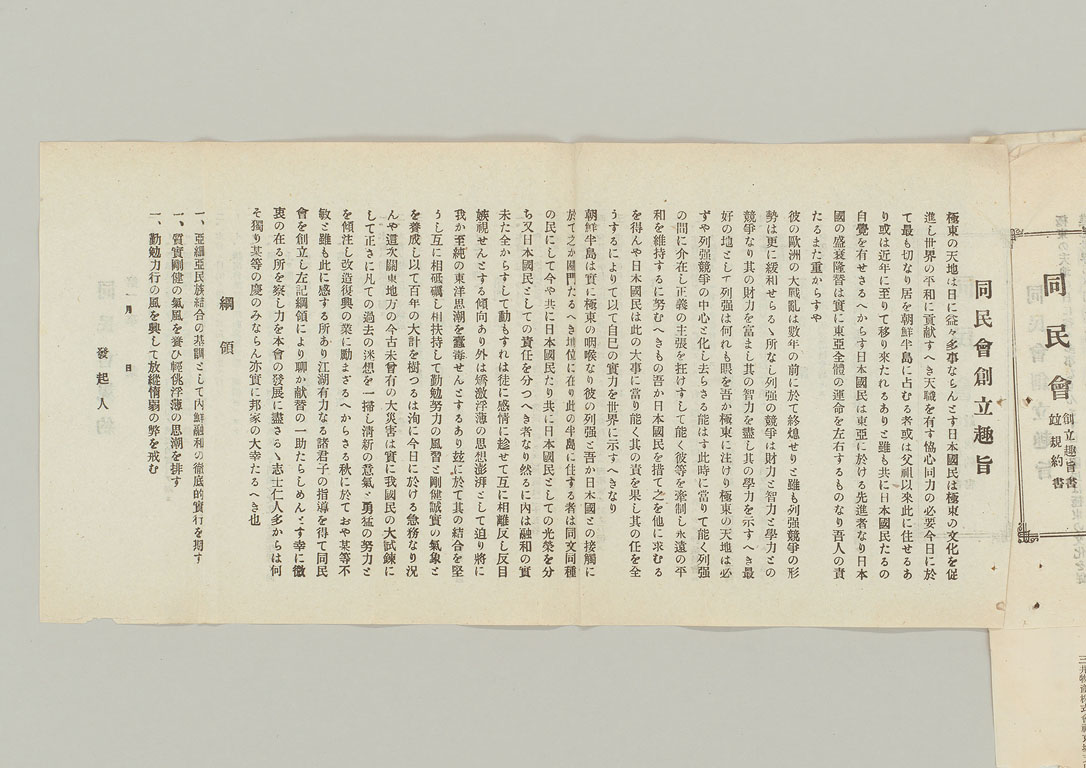 同民會
創立趣旨書
竝規約書
同民會創立趣旨
極東の天地は日に益々多事ならんとす日本國民は極東の文化を促
進し世界の平和に貢獻すへき天職を有す協心同力の必要今日に於
て最も切なり居を朝鮮半島に占むる者或は父祖以來此に住せるあ
り或は近年に至りて移り來たれるありと雖も共に日本國民たるの
自覺を有せさるへからす日本國民は東亞に於ける先進者なり日本
國の盛衰隆替は實に東亞全體の運命を左右するものなり吾人の責
たるまた重からすや
彼の歐洲の大戰亂は數年の前に於て終熄せりと雖も列强競爭の形
勢は更に緩和せらるゝ所なし列强の競爭は財力と智力と學力との
競爭なり其の財力を富まし其の智力を盡し其の學力を示すへき最
好の地として列强は何れも眼を吾か極東に注けり極東の天地は必
すや列强競爭の中心と化し去らさる能はす此時に當りて能く列强
の間に介在し正義の主張を枉けすして能く彼等を牽制し永遠の平
和を維持するに努むへきもの吾か日本國民を措て之を他に求むる
を得んや日本國民は此の大事に當り能く其の責を果し其の任を全
うするによりて以て自己の實力を世界に示すへきなり
朝鮮半島は實に極東の咽喉なり彼の列强と吾か日本國との接觸に
於て之か關門たるへき地位に在り此の半島に住する者は同文同種
の民にして今や共に日本國民たり共に日本國民としての光榮を分
ち又日本國民としての責任を分つへき者なり然るに内は融和の實
未た全からすして動もすれは徒に感情に趁せて互に相離反し反目
嫉視せんとする傾向あり外は矯激浮薄の思想澎湃として迫り將に
我か至純の東洋思潮を蠹毒せんとするあり玆に於て其の結合を堅
うし互に相砥礪し相扶持して勤勉努力の風習と剛健誠實の氣象と
を養成し以て百年の大計を樹つるは洵に今日に於ける急務なり況
んや這次關東地方の今古未曾有の大災害は實に我國民の大試鍊に
して正さに凡ての過去の迷想を一掃し淸新の意氣と勇猛の努力と
を傾注し改造復興の業に勵まさるへからさる秋に於ておや某等不
敏と雖も此に感する所あり江湖有力なる諸君子の指導を得て同民
會を創立し左記綱領により聊か献替の一助たらしめんとす幸に微
衷の在る所を察し力を本會の發展に盡さるゝ志士仁人多からは何
そ獨り某等の慶のみならん亦實に邦家の大幸たるへき也
綱領
一、亞細亞民族結合の基調として内鮮融和の徹底的實行を期す
一、質實剛健の氣風を養ひ輕佻浮薄の思潮を排す
一、勤勉力行の風を興して放縱惰弱の弊を戒む
月　日
發起人